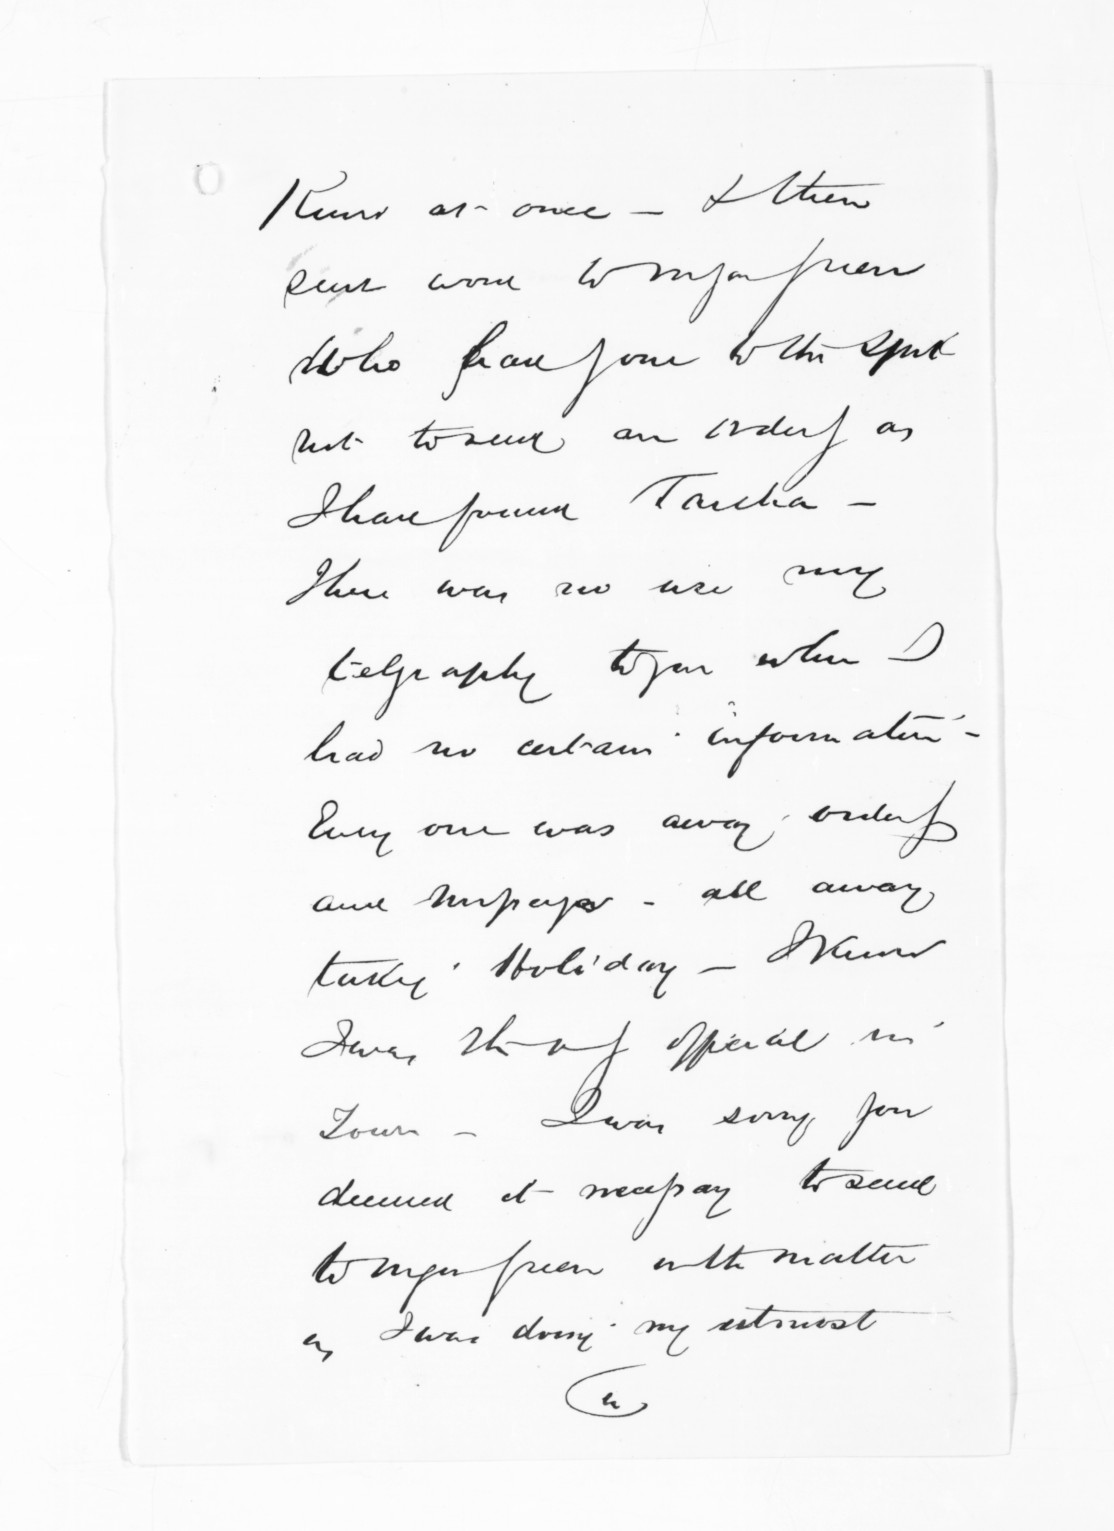 Know at once — & then
sent word to Major Green
who had gone to the spot
not to send an orderly as
I have found Taueha —
There was no use my
telgraphg to you when I
had no certain information —
Every one was away, orderly
and Mr — all away
taking Holiday — I Know
I was the only official in
Town — I was sorry you
deemed it necessary to send
to Major Green in the matter
as I was doing my utmost